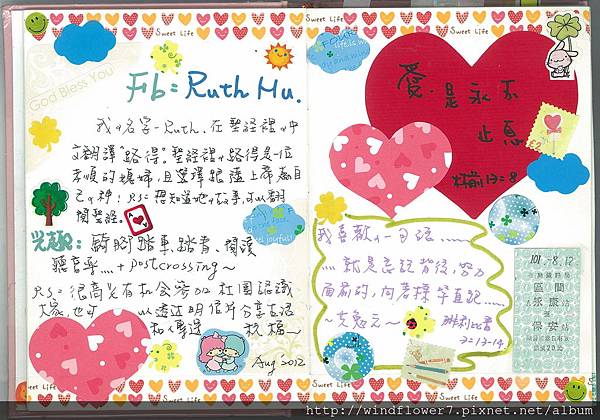 Sweet Life
God Bless You
Fb = Ruth Hu.
我的名字-Ruth, 在聖經裡的中
文翻譯"路得", 聖經裡的路得是一位
孝順的媳婦, 且選擇跟隨上帝為自
己的神! P.S = 想知道她的故事, 可以翻
閱聖經。
興趣: 騎腳踏車、踏青、閱讀
聽音樂.... + postcrossing~
P.S = 很高興有机会參加社團認識
大家, 也可以透过明信片分享生活
和傳遞祝福~
Aug 2012
愛.是永不
止息
林前13=8
我喜歡的一句話......
.... 就是忘記背後, 努力
面前的, 向著標竿直跑.....
腓利比書
3=13-14
101.-8.12
區間
永康站
至
保安站
http://windflower7.pixnet.net/album